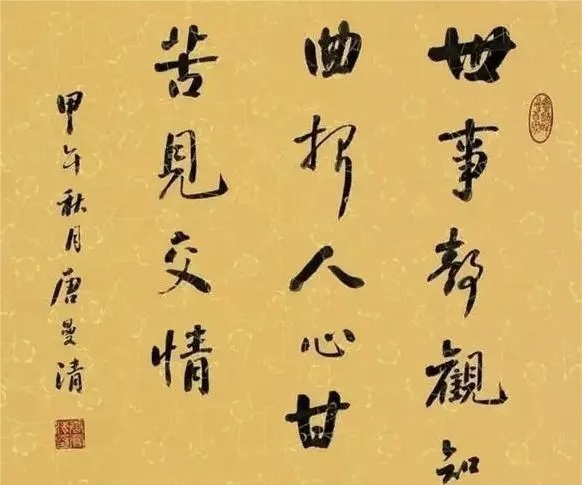 世事靜觀知
曲折人心甘
苦見交情
甲午秋月唐曼清